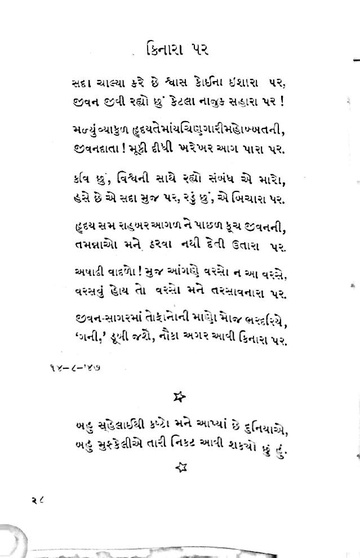 કિનારા પર
સદા ચાલ્યા કરે છે શ્વાસ કોઈના ઇશારા પર,
જીવન જીવી રહ્યો છું કેટલા નાજુક સહારા પર !
મળ્યું વ્યાકુળ હૃદય તેમાંય ચિણગારી મહોબ્બતની,
જીવનદાતા ! મૂકી દીધી ખરેખર આગ પારા પર.
કવિ છું, વિશ્વની સાથે રહ્યો સંબંધ એ મારો,
હસે છે એ સદા મુજ પર, રડું છું, એ બિચારા પર.
હૃદય સમ રાહબર આગળ ને પાછળ કૂચ જીવનની,
તમન્નાઓ મને ઠરવા નથી દેતી ઉતારા પર.
અષાઢી વાદળો ! મુજ આંગણે વરસો ન આ વરસે,
વરસવું હોય તો વરસો મને તરસાવનારા પર.
જીવન-સાગરમાં તોફાનોની માણો મોજ ભરદરિયે,
'ગની,' ડૂબી જશે, નૌકા અગર આવી કિનારા પર.
૧૪-૮-'૪૭
બહુ સહેલાઈથી કષ્ટો મને આપ્યાં છે દુનિયાએ,
બહુ મુશ્કેલીએ તારી નિકટ આવી શકયો છું હું.
૨૮